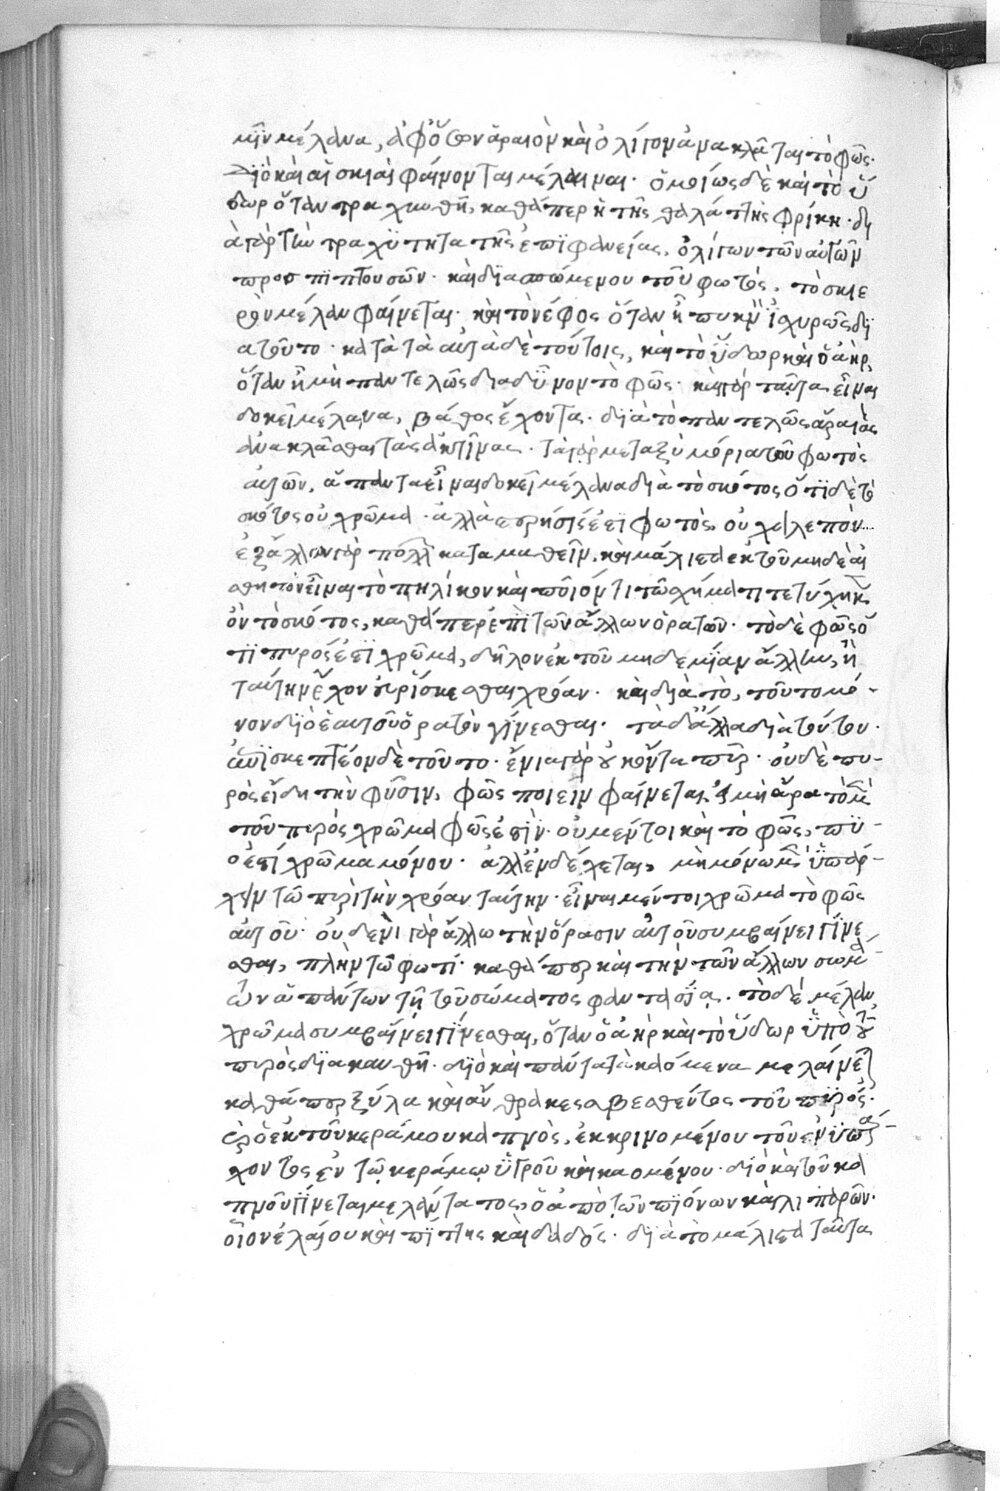 μὴν μέλανα, ἀφ' ὅσων ἀραιὸν καὶ ὀλίγον ἀνακλᾶται τὸ φῶς·
διὸ καὶ αἱ σκιαὶ φαίνονται μέλαιναι· ὁμοίως δὲ καὶ τὸ ὕ
δωρ ὅταν τραχυνθῇ, καθάπερ ἡ τῆς θαλάττης φρίκη· δι
ὰ γὰρ τὴν τραχύτητα τῆς ἐπιφανείας, ὀλίγων τῶν αὐγῶν
προσπιπτουσῶν· καὶ διασπωμένου τοῦ φωτός, τὸ σκιε
ρὸν μέλαν φαίνεται· καὶ τὸ νέφος ὅταν ᾖ πυκνὸν ἰσχυρῶς δι
ὰ τοῦτο· κατὰ τὰ αὐτὰ δὲ τούτοις, καὶ τὸ ὕδωρ καὶ ὁ ἀὴρ,
ὅταν ᾖ μὴ παντελῶς διαδῦνον τὸ φῶς· καὶ γὰρ ταῦτα εἶναι
δοκεῖ μέλανα, βάθος ἔχοντα· διὰ τὸ παντελῶς ἀραιὰς
ἀνακλᾶσθαι τὰς ἀκτῖνας· τὰ γὰρ μεταξὺ μόρια τοῦ φωτὸς
αὐτῶν, ἅπαντα εἶναι δοκεῖ μέλανα διὰ τὸ σκότος ὅτι δὲ τὸ
σκότος οὐ χρῶμα· ἀλλὰ στέρησίς ἐστι φωτὸς, οὐ χαλεπὸν
ἐξ ἄλλων γὰρ πολλῶν καταμαθεῖν, καὶ μάλιστα ἐκ τοῦ μηδὲ αἰ
σθητὸν εἶναι τὸ πηλίκον καὶ ποῖόν τι τῷ σχήματι τετύχηκεν
ὂν τὸ σκότος, καθάπερ ἐπὶ τῶν ἄλλων ὁρατῶν· τὸ δὲ φῶς ὅ
τι πυρός ἐστι χρῶμα, δῆλον ἐκ τοῦ μηδεμίαν ἄλλην, ἢ
ταύτην ἔχον εὑρίσκεσθαι χρόαν· καὶ διὰ τὸ, τοῦτο μό-
νον δι' ὃ ἑαυτοῦ ὁρατὸν γίνεσθαι· τὰ δ' ἄλλα διὰ τούτου·
ἐπισκεπτέον δὲ τοῦτο· ἔνια γὰρ οὐκ ὄντα πῦρ· οὐδὲ πυ-
ρὸς εἴδη τὴν φύσιν, φῶς ποιεῖν φαίνεται, εἰ μὴ ἄρα τὸ μὲν
τοῦ πυρὸς χρῶμα φῶς ἐστὶν· οὐ μέντοι καὶ τὸ φῶς, πυ-
ρός ἐστι χρῶμα μόνου· ἀλλ' ἐνδέχεται, μὴ μόνῳ μὲν ὑπάρ-
χειν τῷ πυρὶ τὴν χρόαν ταύτην· εἶναι μέντοι χρῶμα τὸ φῶς
αὐτοῦ· οὐδενὶ γὰρ ἄλλῳ τὴν ὅρασιν αὐτοῦ συμβαίνει γίνε
σθαι, πλὴν τῷ φωτί· καθάπερ καὶ τὴν τῶν ἄλλων σωμά-
των ἁπάντων τῇ τοῦ σώματος φαντασίᾳ· τὸ δὲ μέλαν
χρῶμα συμβαίνει γίνεσθαι, ὅταν ὁ ἀὴρ καὶ τὸ ὕδωρ ὑπὸ τοῦ
πυρὸς διακαυθῇ· διὸ καὶ πάντα τὰ καόμενα μελαίνεται
καθάπερ ξύλα καὶ ἄνθρακες σβεσθέντος τοῦ πυρός·
καὶ ὁ ἐκ τοῦ κεράμου καπνὸς, ἐκκρινομένου τοῦ ἐνυπάρ-
χοντος ἐν τῷ κεράμῳ ὑγροῦ καὶ καομένου· διὸ καὶ τοῦ κα
πνοῦ γίνεται μελάντατος, ὁ ἀπὸ τῶν πιόνων καὶ λιπαρῶν·
οἷον ἐλαίου καὶ πίττης καὶ δᾳδός· διὰ τὸ μάλιστα ταῦτα